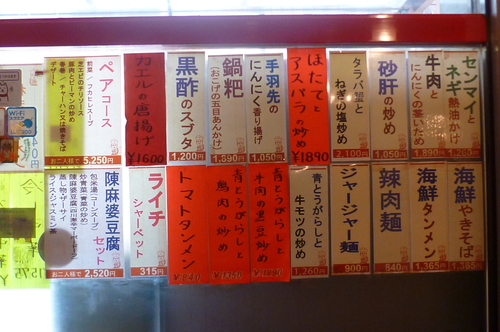 センマイと
ネギ熱油かけ
1,260円
牛肉と
にんにくの茎いため
1,890円
砂肝の炒め
1,050円
タラバ蟹と
ねぎの塩炒め
2,100円
ほたてと
アスパラの炒め
¥1890
手羽先の
にんにく香り揚げ
1,050円
鍋粑
(おこげの五目あんかけ)
1,890円
黒酢のスブタ
1,200円
カエルの唐揚げ
¥1600
ペアコース
前菜／フカヒレスープ
芝エビのチリソース
豚肉とピーマンの炒め
春巻／チャーハン又は焼きそば
デザート
お二人様で 5,250円
海鮮やきそば
1,365円
海鮮タンメン
1,365円
辣肉麺
840円
ジャージャー麺
900円
青とうがらしと
牛モツの炒め
1,260円
青とうがらしと
牛肉の黒豆炒め
青とうがらしと
鶏肉の炒め
トマトタンメン
¥840
ライチ
シャーベット
315円
陳麻婆豆腐
セット
包米湯(コーンスープ)
炒青菜(青菜の炒め)
陳麻婆豆腐(四川麻婆ドーフ)
蒸し物・ザーサイ
ライス・ジャスミン茶
お二人様で 2,520円
Wi-Fi